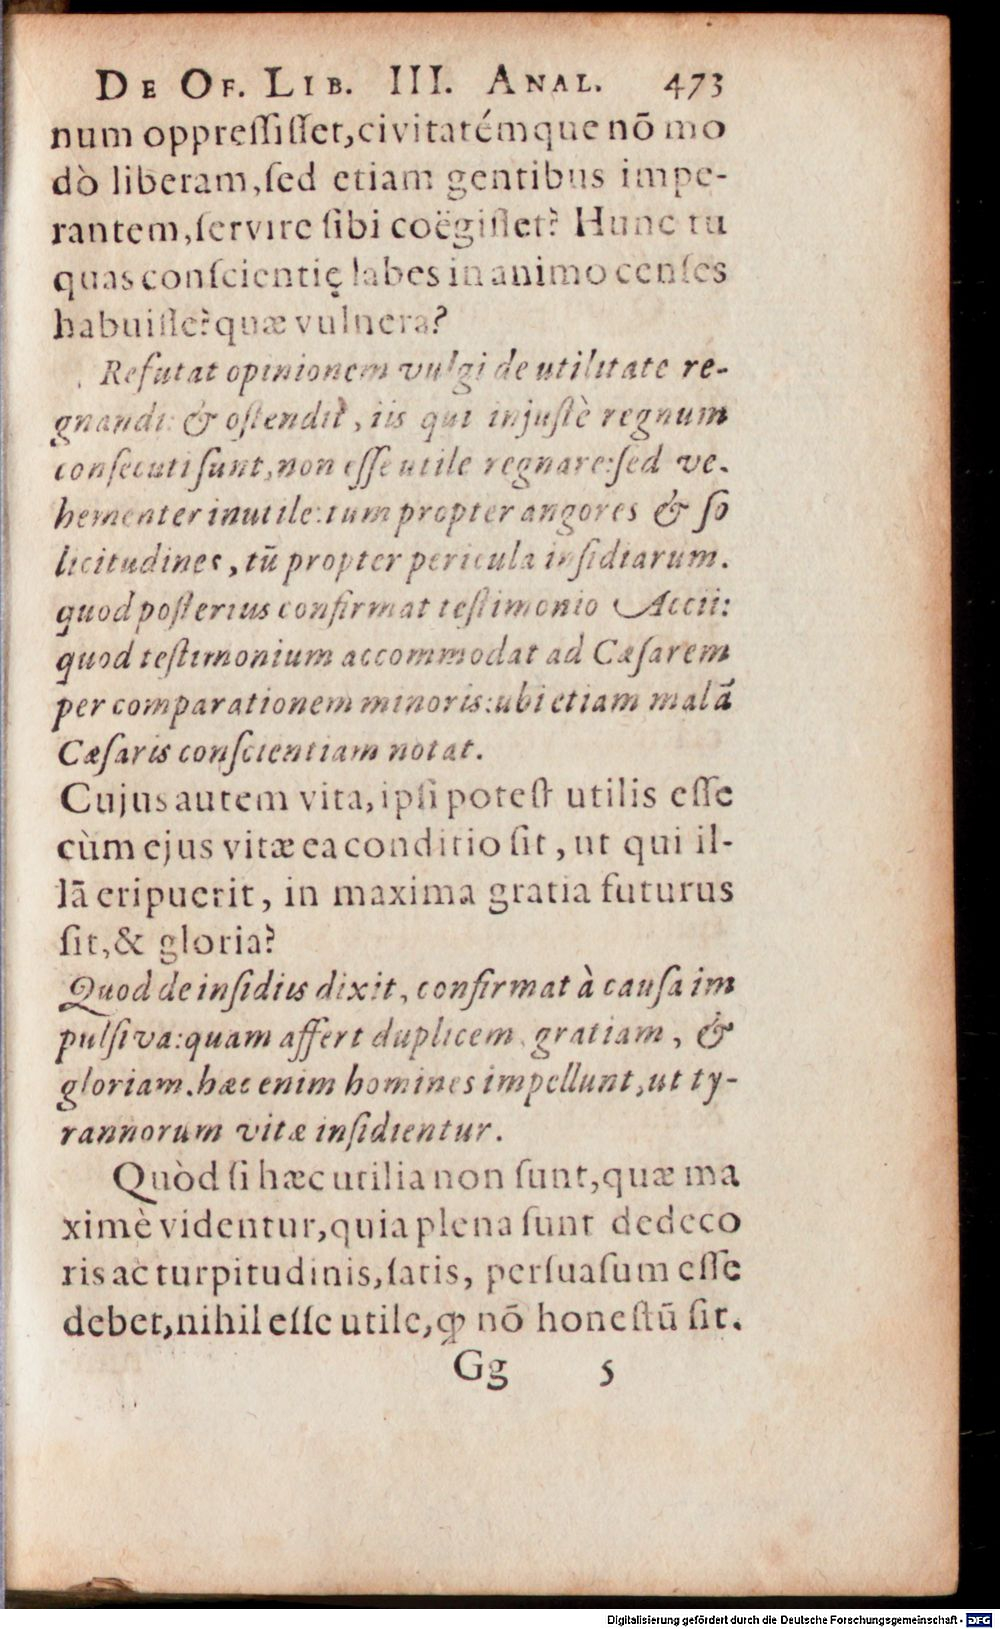 DE OF. LIB. III. ANAL. 473
num oppreſſiſſet,civitatémque nō mo
dò liberam,ſed etiam gentibus impe-
rantem,ſervire ſibi coëgiſſet? Hunc tu
quas conſcientię labes in animo cenſes
habuiſſe? quæ vulnera?
Refutat opinionem vulgi de utilitate re-
gnandi: & oſtendit, iis qui injuſtè regnum
conſecuti ſunt,non eſſe utile regnare:ſed ve-
hementer inutile:tum propter angores & ſo
licitudines, tū propter pericula inſidiarum.
quod poſterius confirmat teſtimonio Accii:
quod teſtimonium accommodat ad Cæſarem
per comparationem minoris:ubi etiam malā
Cæſaris conſcientiam notat.
Cujus autem vita,ipſi poteſt utilis eſſe
cùm ejus vitæ ea conditio ſit, ut qui il-
lā eripuerit, in maxima gratia futurus
ſit,& gloria?
Quod de inſidiis dixit, confirmat à cauſa im
pulſiva:quam affert duplicem, gratiam, &
gloriam.hæc enim homines impellunt,ut ty-
rannorum vitæ inſidientur.
Quòd ſi hæc utilia non ſunt,quæ ma
ximè videntur,quia plena ſunt dedeco
ris ac turpitudinis,ſatis, perſuaſum eſſe
debet,nihil eſſe utile,ꝙ nō honeſtū ſit.
Gg 5
Digitalisierung gefördert durch die Deutsche Forschungsgemeinschaft - DFG